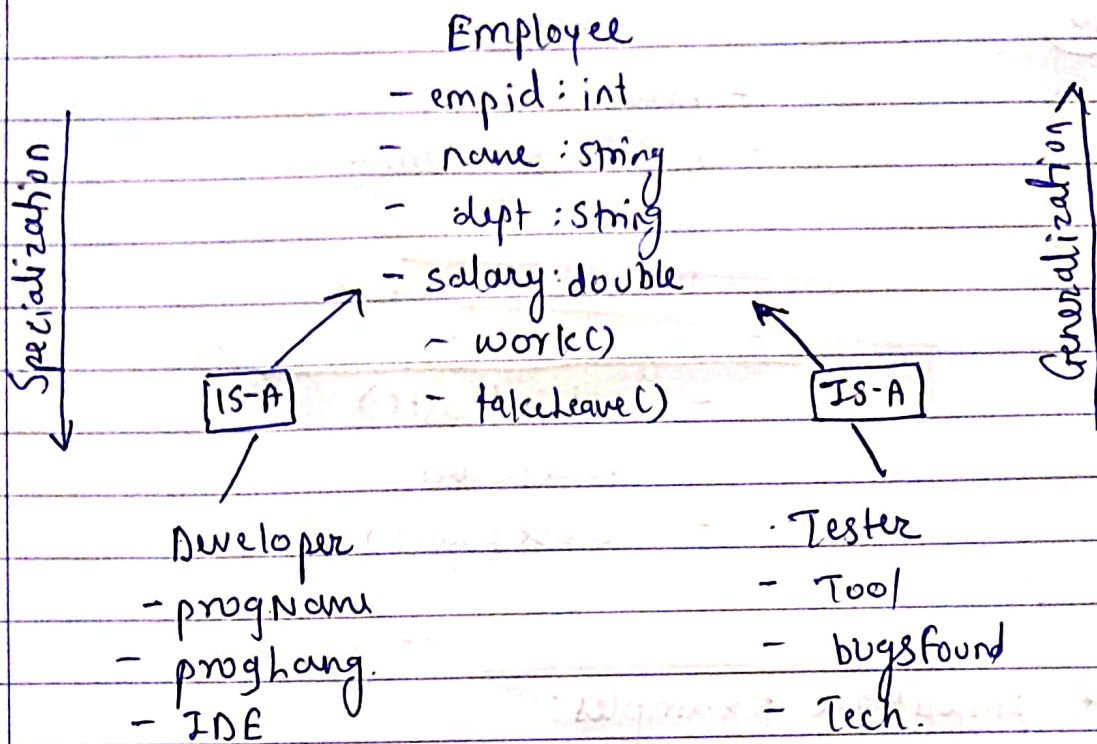 Employee
- empid : int
- name : string
- dept : String
- salary : double
- work()
- takeLeave()
Specialization
Generalization
IS-A
IS-A
Developer
- progName
- progLang.
- IDE
Tester
- Tool
- bugsfound
- Tech.